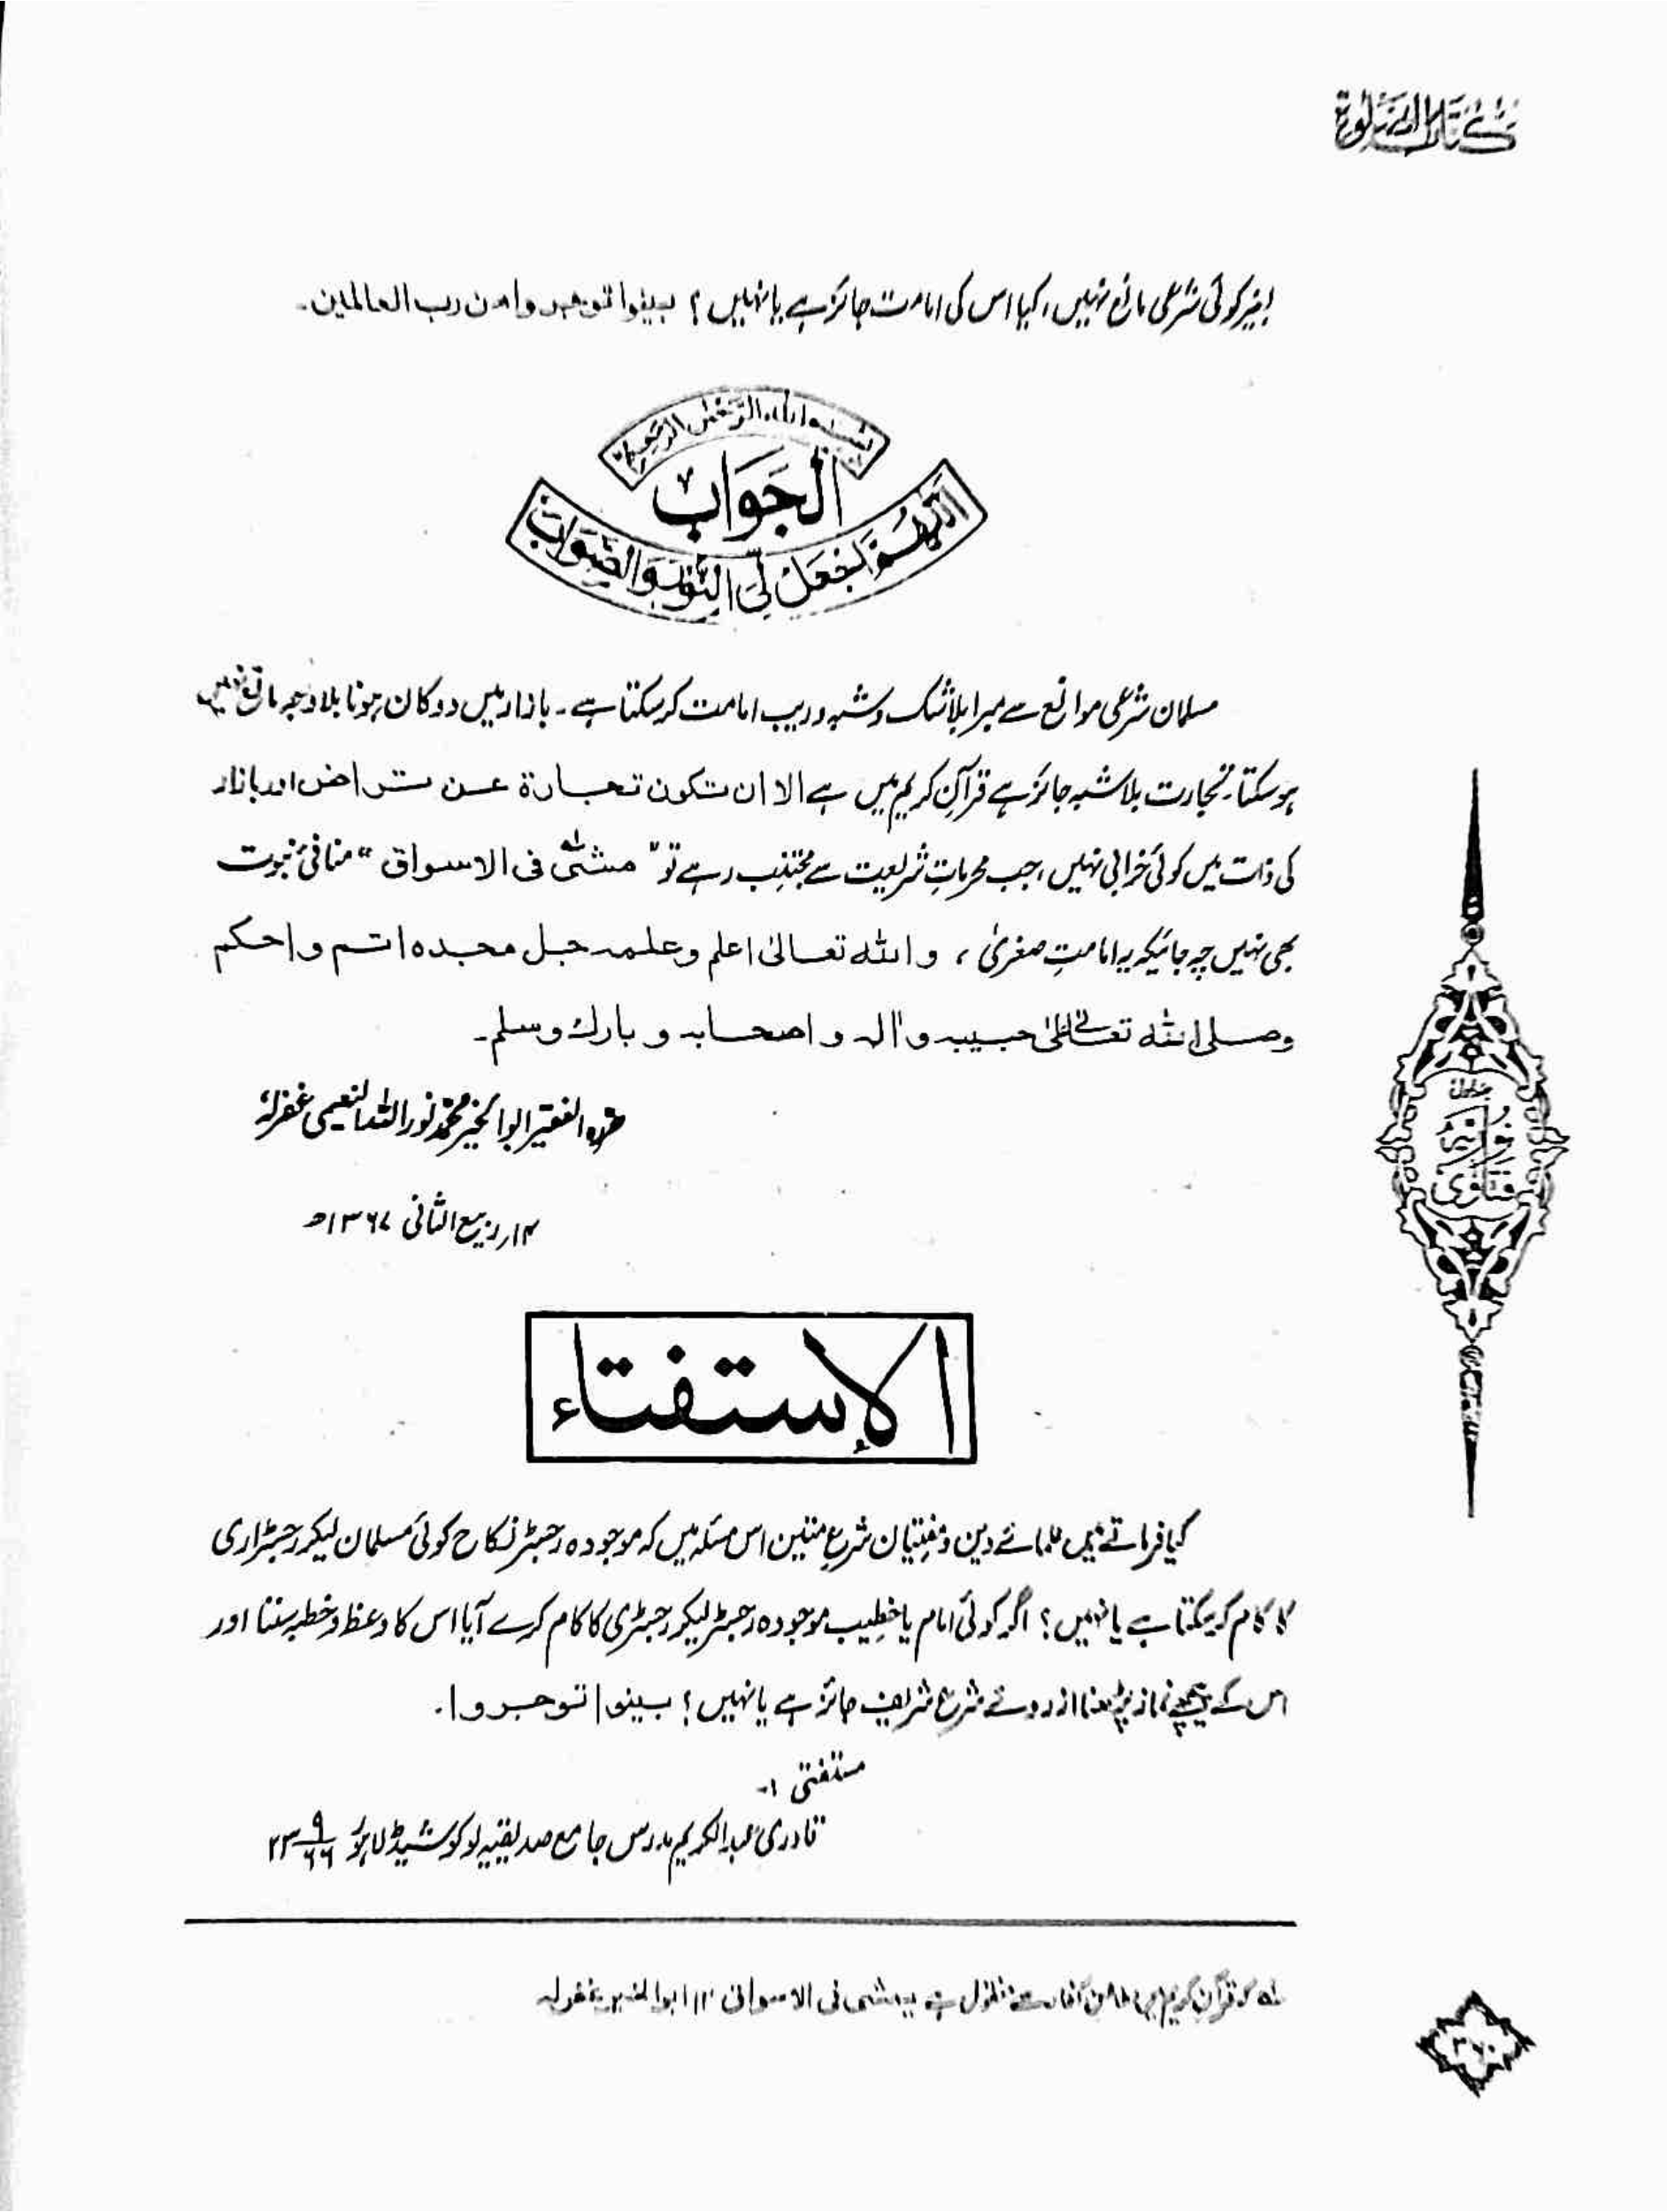 کتاب الصلوٰة
بغیر کوئی شرعی مانع نہیں، کیا اس کی امامت جائز ہے یا نہیں؟ بینوا توجروا من رب العالمین۔
بسم الله الرحمن الرحیم
الجواب
اللهم اجعل لی النور والصواب
مسلمان شرعی موانع سے مبرا بلاشک وشبہ وریب امامت کرسکتا ہے۔ بازار میں دوکان ہونا بلاوجہ مانع نہیں
ہوسکتا۔ تجارت بلاشبہ جائز ہے قرآن کریم میں ہے الا ان تکون تجارة عن تراض اور بازار
کی ذات میں کوئی خرابی نہیں، جب محرماتِ شریعت سے مجتنب رہے تو "مشی فی الاسواق" منافئ نبوت
بھی نہیں چہ جائیکہ یہ امامتِ صغریٰ، والله تعالیٰ اعلم وعلمہ جل مجدہ اتم واحکم
وصلی الله تعالیٰ علیٰ حبیبہ واٰلہ واصحابہ وبارك وسلم۔
حررہ الفقیر ابوالخیر محمد نور اللہ النعیمی غفرلہٗ
۱۴ ربیع الثانی ۱۳۶۷ھ
الإستفتاء
کیا فرماتے ہیں علمائے دین ومفتیان شرع متین اس مسئلہ میں کہ موجودہ رجسٹر نکاح کوئی مسلمان لیکر رجسٹراری
کا کام کرسکتا ہے یا نہیں؟ اگر کوئی امام یا خطیب موجودہ رجسٹر لیکر رجسٹری کا کام کرے آیا اس کا وعظ وخطبہ سننا اور
اس کے پیچھے نماز پڑھنا ازروئے شرع شریف جائز ہے یا نہیں؟ بینوا توجروا۔
مستفتی :-
قادری عبدالکریم مدرس جامع صدیقیہ لوکوشیڈ لاہور ۲۳/۹/۶۶
لہ قرآن کریم میں ہے یمشی فی الاسواق ۱۲ ابوالخیر غفرلہ
جلد اول
فتاویٰ نوریہ
۳۶۰